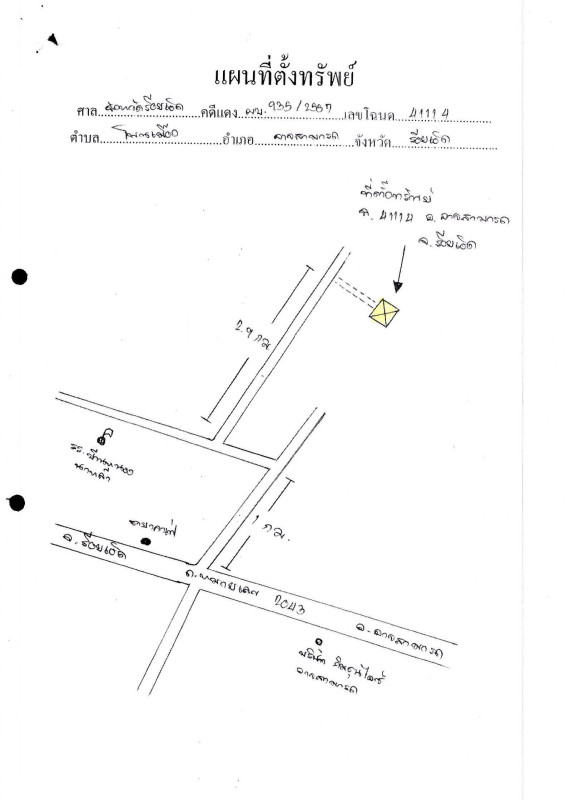 แผนที่ตั้งทรัพย์
ศาล จังหวัดร้อยเอ็ด คดีแดง ผบ. 935/2567 เลขโฉนด 41114
ตำบล โนนเมือง อำเภอ อาจสามารถ จังหวัด ร้อยเอ็ด
ที่ตั้งทรัพย์
ฉ. 41114 อ. อาจสามารถ
จ. ร้อยเอ็ด
2.9 กม
รร. บ้านหนอง
นาหล้า
1 กม.
จ. ร้อยเอ็ด
ถ. หมายเลข 2043
อ. อาจสามารถ
อาจสามารถ